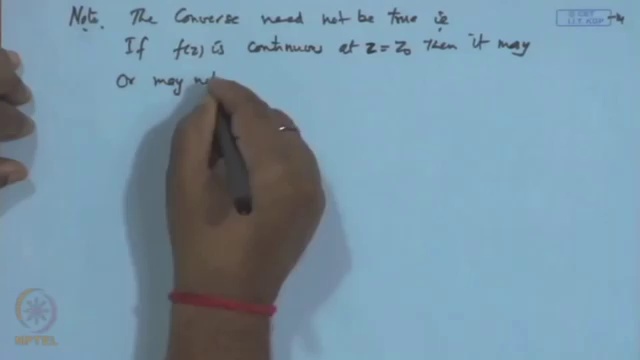 Note. The Converse need not be true ie
If f(z) is continuous at z = z₀ then it may
Or may not
© CET
I.I.T. KGP
NPTEL